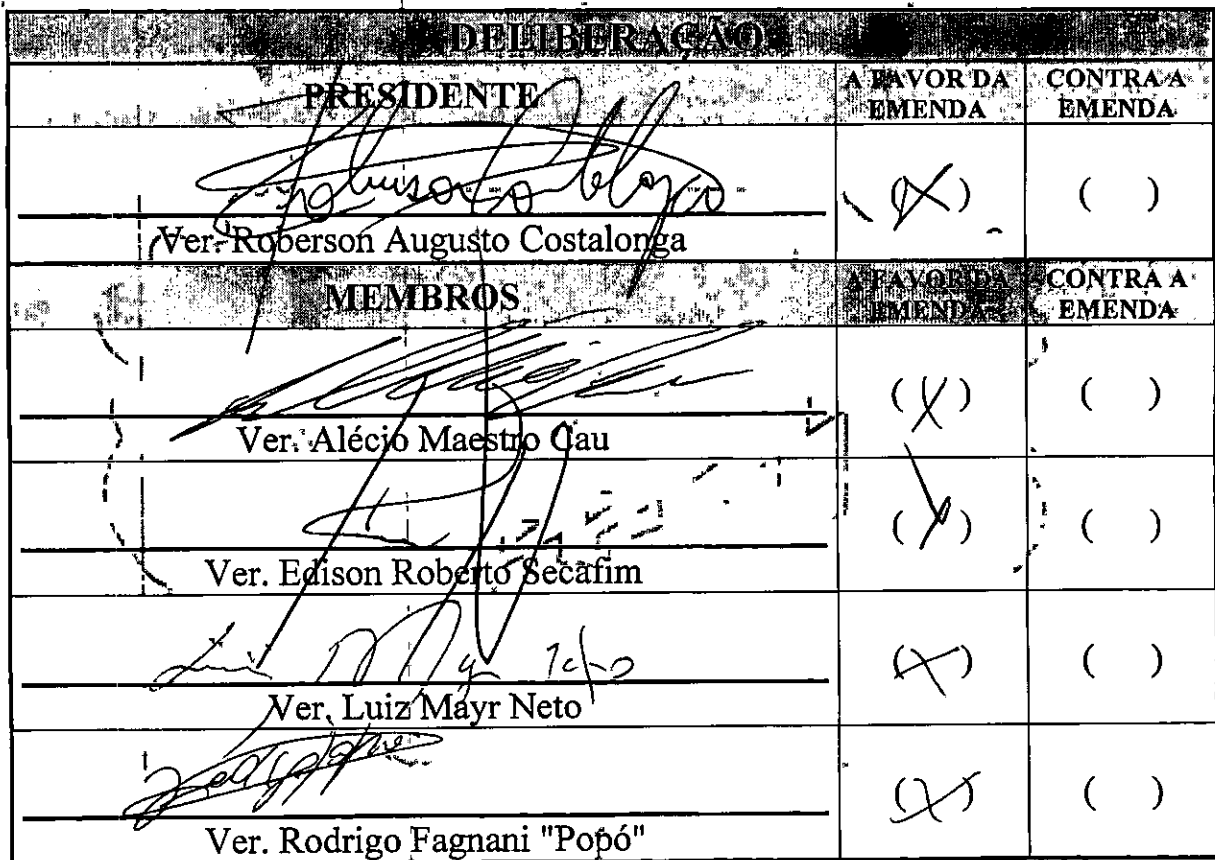 DELIBERAÇÃO
PRESIDENTE A FAVOR DA EMENDA CONTRA A EMENDA
Ver. Roberson Augusto Costalonga (X) ( )
MEMBROS A FAVOR DA EMENDA CONTRA A EMENDA
Ver. Alécio Maestro Cau (X) ( )
Ver. Edison Roberto Secafim (X) ( )
Ver. Luiz Mayr Neto (X) ( )
Ver. Rodrigo Fagnani "Popó" (X) ( )